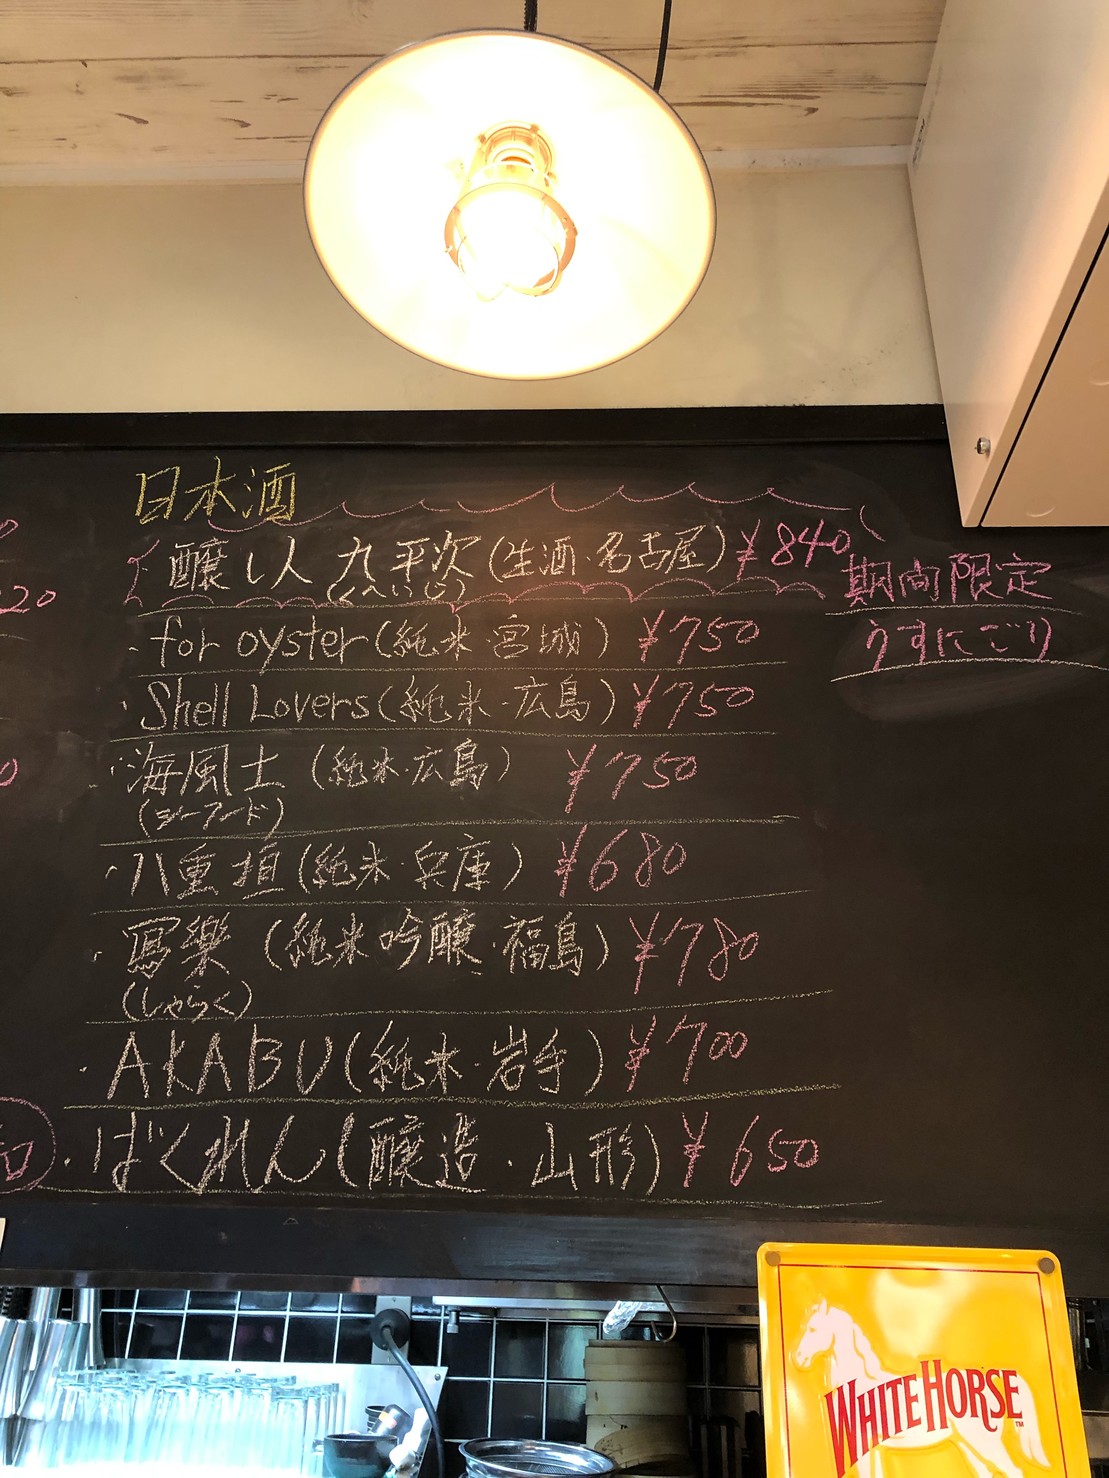 日本酒
醸し人 九平次(生酒・名古屋) ¥840
(くへいじ)
期間限定
うすにごり
・for oyster(純米・宮城) ¥750
・Shell Lovers(純米・広島) ¥750
・海風土(純米・広島) ¥750
(シーフード)
・八重垣(純米・兵庫) ¥680
・寫樂(純米吟醸・福島) ¥780
(しゃらく)
・AKABU(純米・岩手) ¥700
・ばくれん(醸造・山形) ¥650
WHITE HORSE